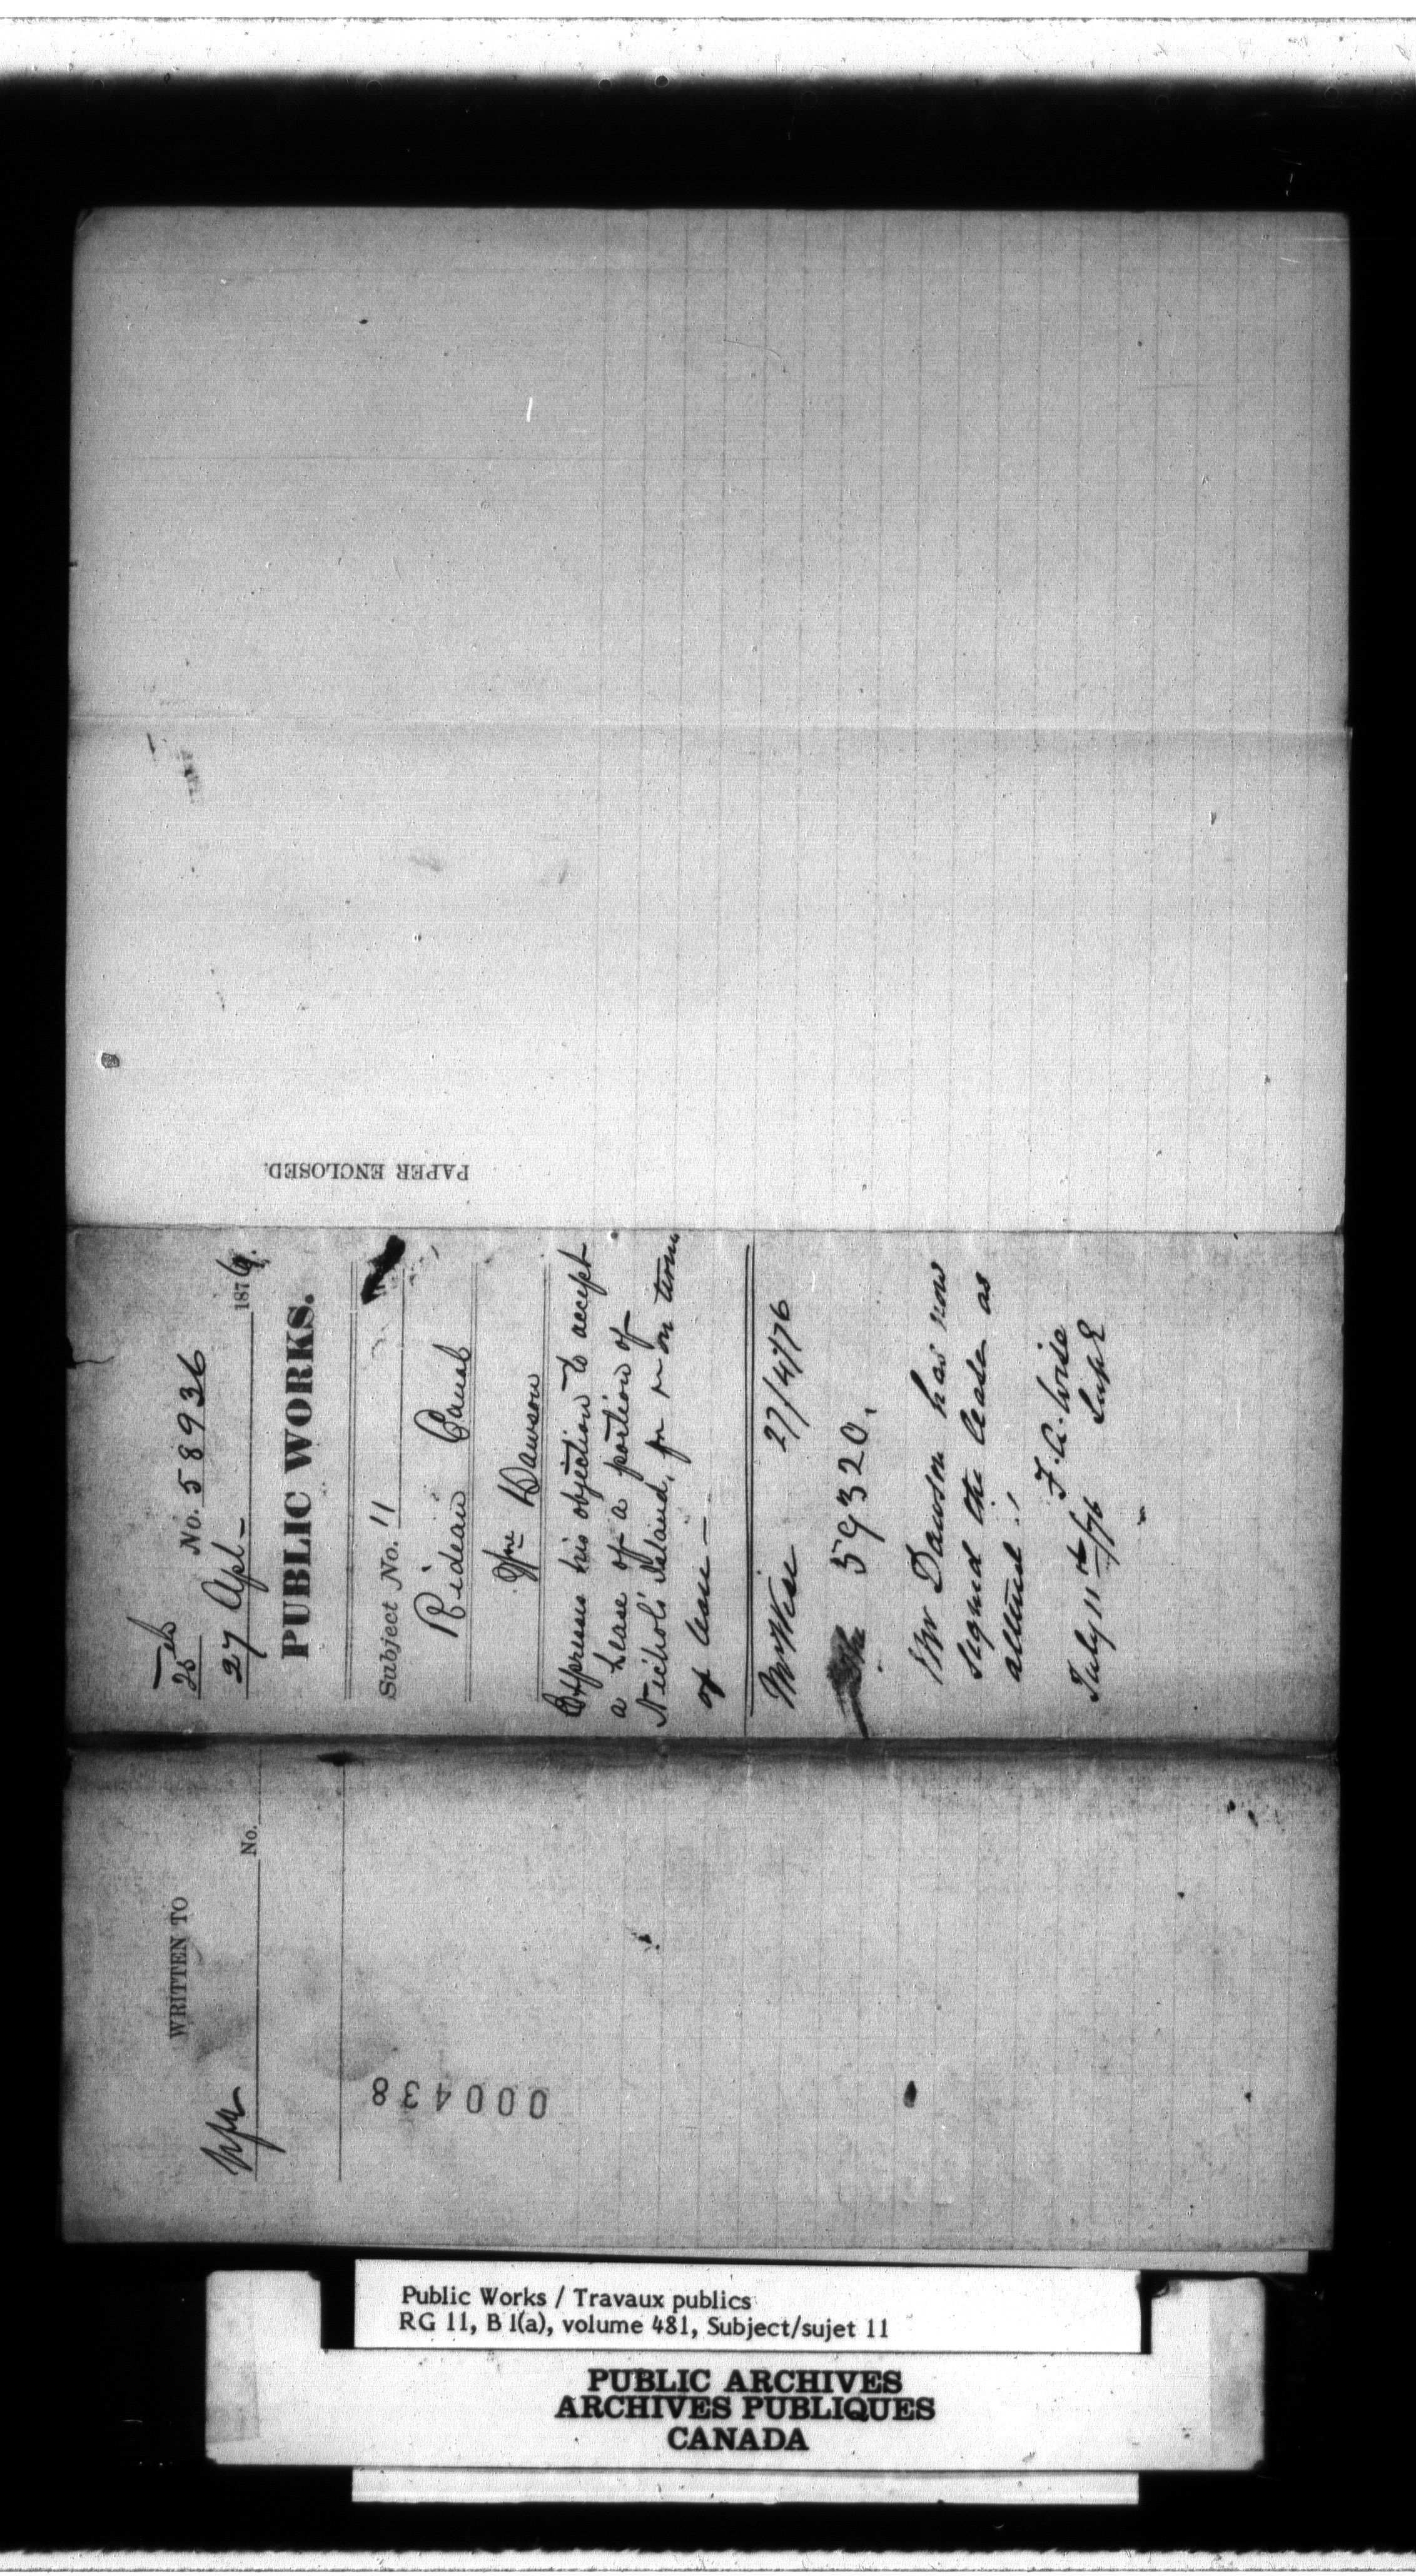 PAPER ENCLOSED.
25
No. 58936
27 Apl - 1876.
PUBLIC WORKS.
Subject No. 11
Rideau Canal
Wm Dawson
Expresses his objection to accept
a lease of a portion of
Nichols Island, on terms
of lease —
Mr Wise 27/4/76
59320.
Mr Dawson has now
signed the lease as
altered !
F. A. Wise
July 11th/76 Supt
WRITTEN TO
No.
000438
Public Works / Travaux publics
RG 11, B 1(a), volume 481, Subject/sujet 11
PUBLIC ARCHIVES
ARCHIVES PUBLIQUES
CANADA